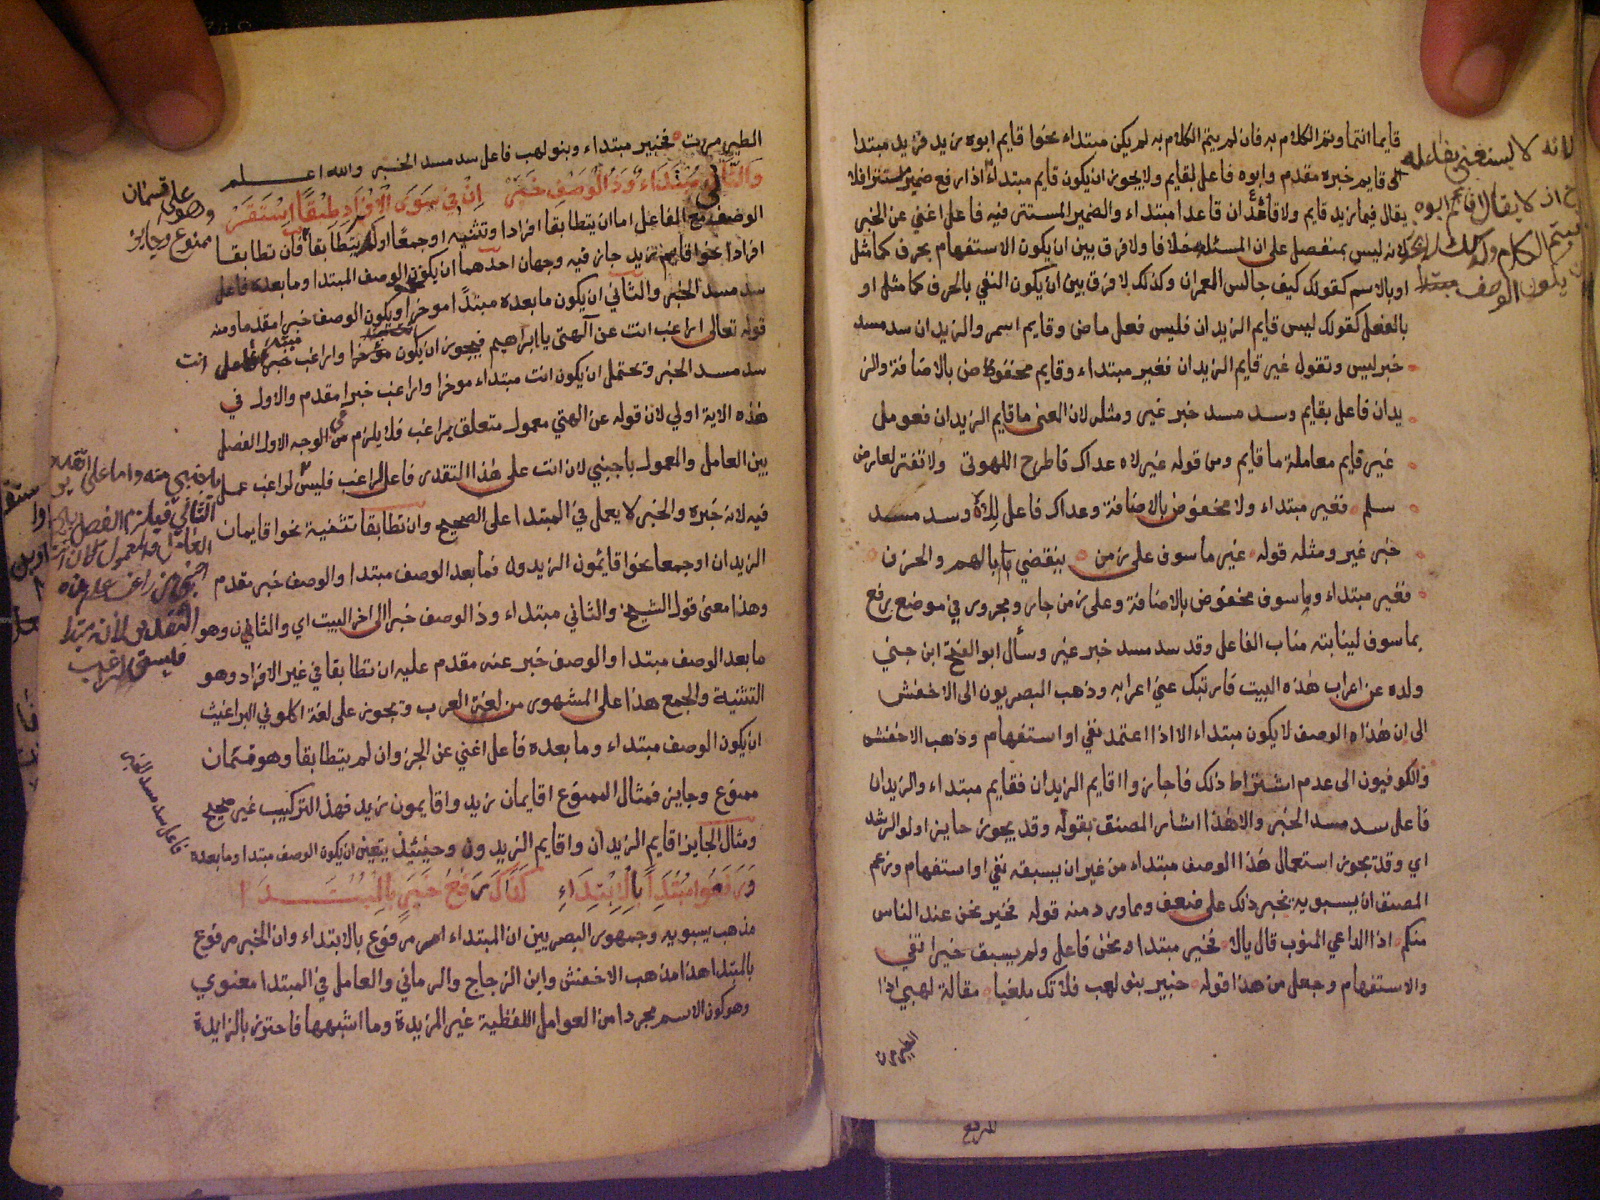 قايما انتما ويتم الكلام به فان لم يتم الكلام به لم يكن مبتداء نحوا قايم ابوه زيد فزيد مبتدا
قايم خبره مقدم وابوه فاعل لقايم ولا يجوز ان يكون قايم مبتداء اذ ارفع ضمير مستتر افلا
يقال فيما زيد قايم ولا قاعد ان قاعدا مبتداء والضمير المستتر فيه فاعل اغني عن الخبر
لانه ليس بمنفصل على ان المسئله خلافا ولا فرق بين ان يكون الاستفهام بحرف كما مثل
او بالاسم كقولك كيف جالس العمران وكذلك لا فرق بين ان يكون النفي بالحرف كما مثل او
بالفعل كقولك ليس قايم الزيدان فليس فعل ماض وقايم اسم والزيدان سد مسد
خبر ليس وتقول غير قايم الزيدان فغير مبتداء وقايم مخفوظ بالاضافة والز
يدان فاعل بقايم وسد مسد خبر غير ومثله لان المعنى ما قايم الزيدان فعومل
غير قايم معاملة ما قايم ومن قوله غير لاه عداك فاطرح اللهو ولا تغتر لعارض
سلم فغير مبتداء ولاه مخفوض بالاضافة وعداك فاعل لاه وسد مسد
خبر غير ومثله قوله غير ماسوف على زمن ينقضي بالهم والحزن
فغير مبتداء وماسوف مخفوض بالاضافة وعلى زمن جار ومجرور في موضع رفع
بماسوف لنيابته مناب الفاعل وقد سد مسد خبر غير وسأل ابو الفتح ابن جني
ولده عن اعراب هذه البيت فارتبك في اعرابه وذهب البصريون الى الاخفش
الى ان هذاه الوصف لا يكون مبتداء الا اذا اعتمد نفي او استفهام وذهب الاخفش
والكوفيون الى عدم اشتراط ذلك فاجازوا اقايم الزيدان فقايم مبتداء والزيدان
فاعل سد مسد الخبر والا هذا اشار المصنف بقوله وقد يجوز فايز اولو الرشد
اي وقد يجوز استعمال هذا الوصف مبتداء من غير ان يسبقه نفي او استفهام وزعم
المصنف ان سيبويه يجيز ذلك على ضعف ومما ورد منه قوله فخير نحن عند الناس
منكم اذا الداعي المثوب قال يالا فخير مبتداء ونحن فاعل ولم يسبق خيرا نفي
والاستفهام وجعل من هذا قوله خبير بنو لهب فلا تك ملغيا مقالة لهبي اذا
الطير مرت
لانه لا يستغني بفاعله
اذ لا يقال اقايم ابوه
فيتم الكلام وكذلك
يكون الوصف مبتدا
الطير مرت فخبير مبتداء وبنو لهب فاعل سد مسد الخبر والله اعلم
والثان مبتداء وذا الوصف خبر ان في سوى الافراد طبقا استقر
الوصف مع الفاعل اما ان يتطابقا افرادا وتثنيه او جمعا او لا يتطابقا فان تطابقا
وهو على قسمان
ممنوع وجايز
افرادا نحوا قايم زيد جاز فيه وجهان احدهما ان يكون الوصف المبتدا وما بعده فاعل
سد مسد الخبر والثاني ان يكون ما بعده مبتدا موخرا ويكون الوصف خبرا مقدما ومنه
قوله تعالى اراغب انت عن الهتي يا ابراهيم فيجوز ان يكون اراغب مبتدا وانت فاعل
سد مسد الخبر ويحتمل ان يكون انت مبتداء موخرا واراغب خبرا مقدم والاول في
هذه الاية اولى لان قوله عن الهتي معمول متعلق براغب فلا يلزم من الوجه الاول الفصل
بين العامل والمعمول باجنبي لان انت على هذا التقدير فاعل لراغب فليس
فيه لانه خبره والخبر لا يعمل في المبتدا على الصحيح وان تطابقا تثنية نحوا قايمان
الزيدان او جمعا نحوا قايمون الزيدون فما بعد الوصف مبتدا والوصف خبر مقدم
وهذا معنى قول الشيخ والثاني مبتداء وذا الوصف خبر الى اخر البيت اي والثاني وهو
ما بعد الوصف مبتدا والوصف خبر عنه مقدم عليه ان تطابقا في غير الافراد وهو
التثنية والجمع هذا على المشهور من لغة العرب ويجوز على لغة اكلوني البراغيث
ان يكون الوصف مبتداء وما بعده فاعل اغني عن الخبر وان لم يتطابقا وهو قسمان
ممنوع وجايز فمثال الممنوع اقايمان زيد واقايمون زيد فهذ التركيب غير صحيح
ومثال الجايز اقايم الزيدان واقايم الزيدون وحينئذ يتعين ان يكون الوصف مبتدا وما بعده
فاعل سد مسد الخبر
ورفعوا مبتدا بالابتداء كذاك رفع خبر بالمبتدا
مذهب سيبويه وجمهور البصريين ان المبتداء مرفوع بالابتداء وان الخبر مرفوع
بالمبتدا هذا مذهب الاخفش وابن الزجاج والرماني والعامل في المبتدا معنوي
وهو كون الاسم مجردا من العوامل اللفظية غير المزيدة وما اشبهها فاحترز بالزايدة